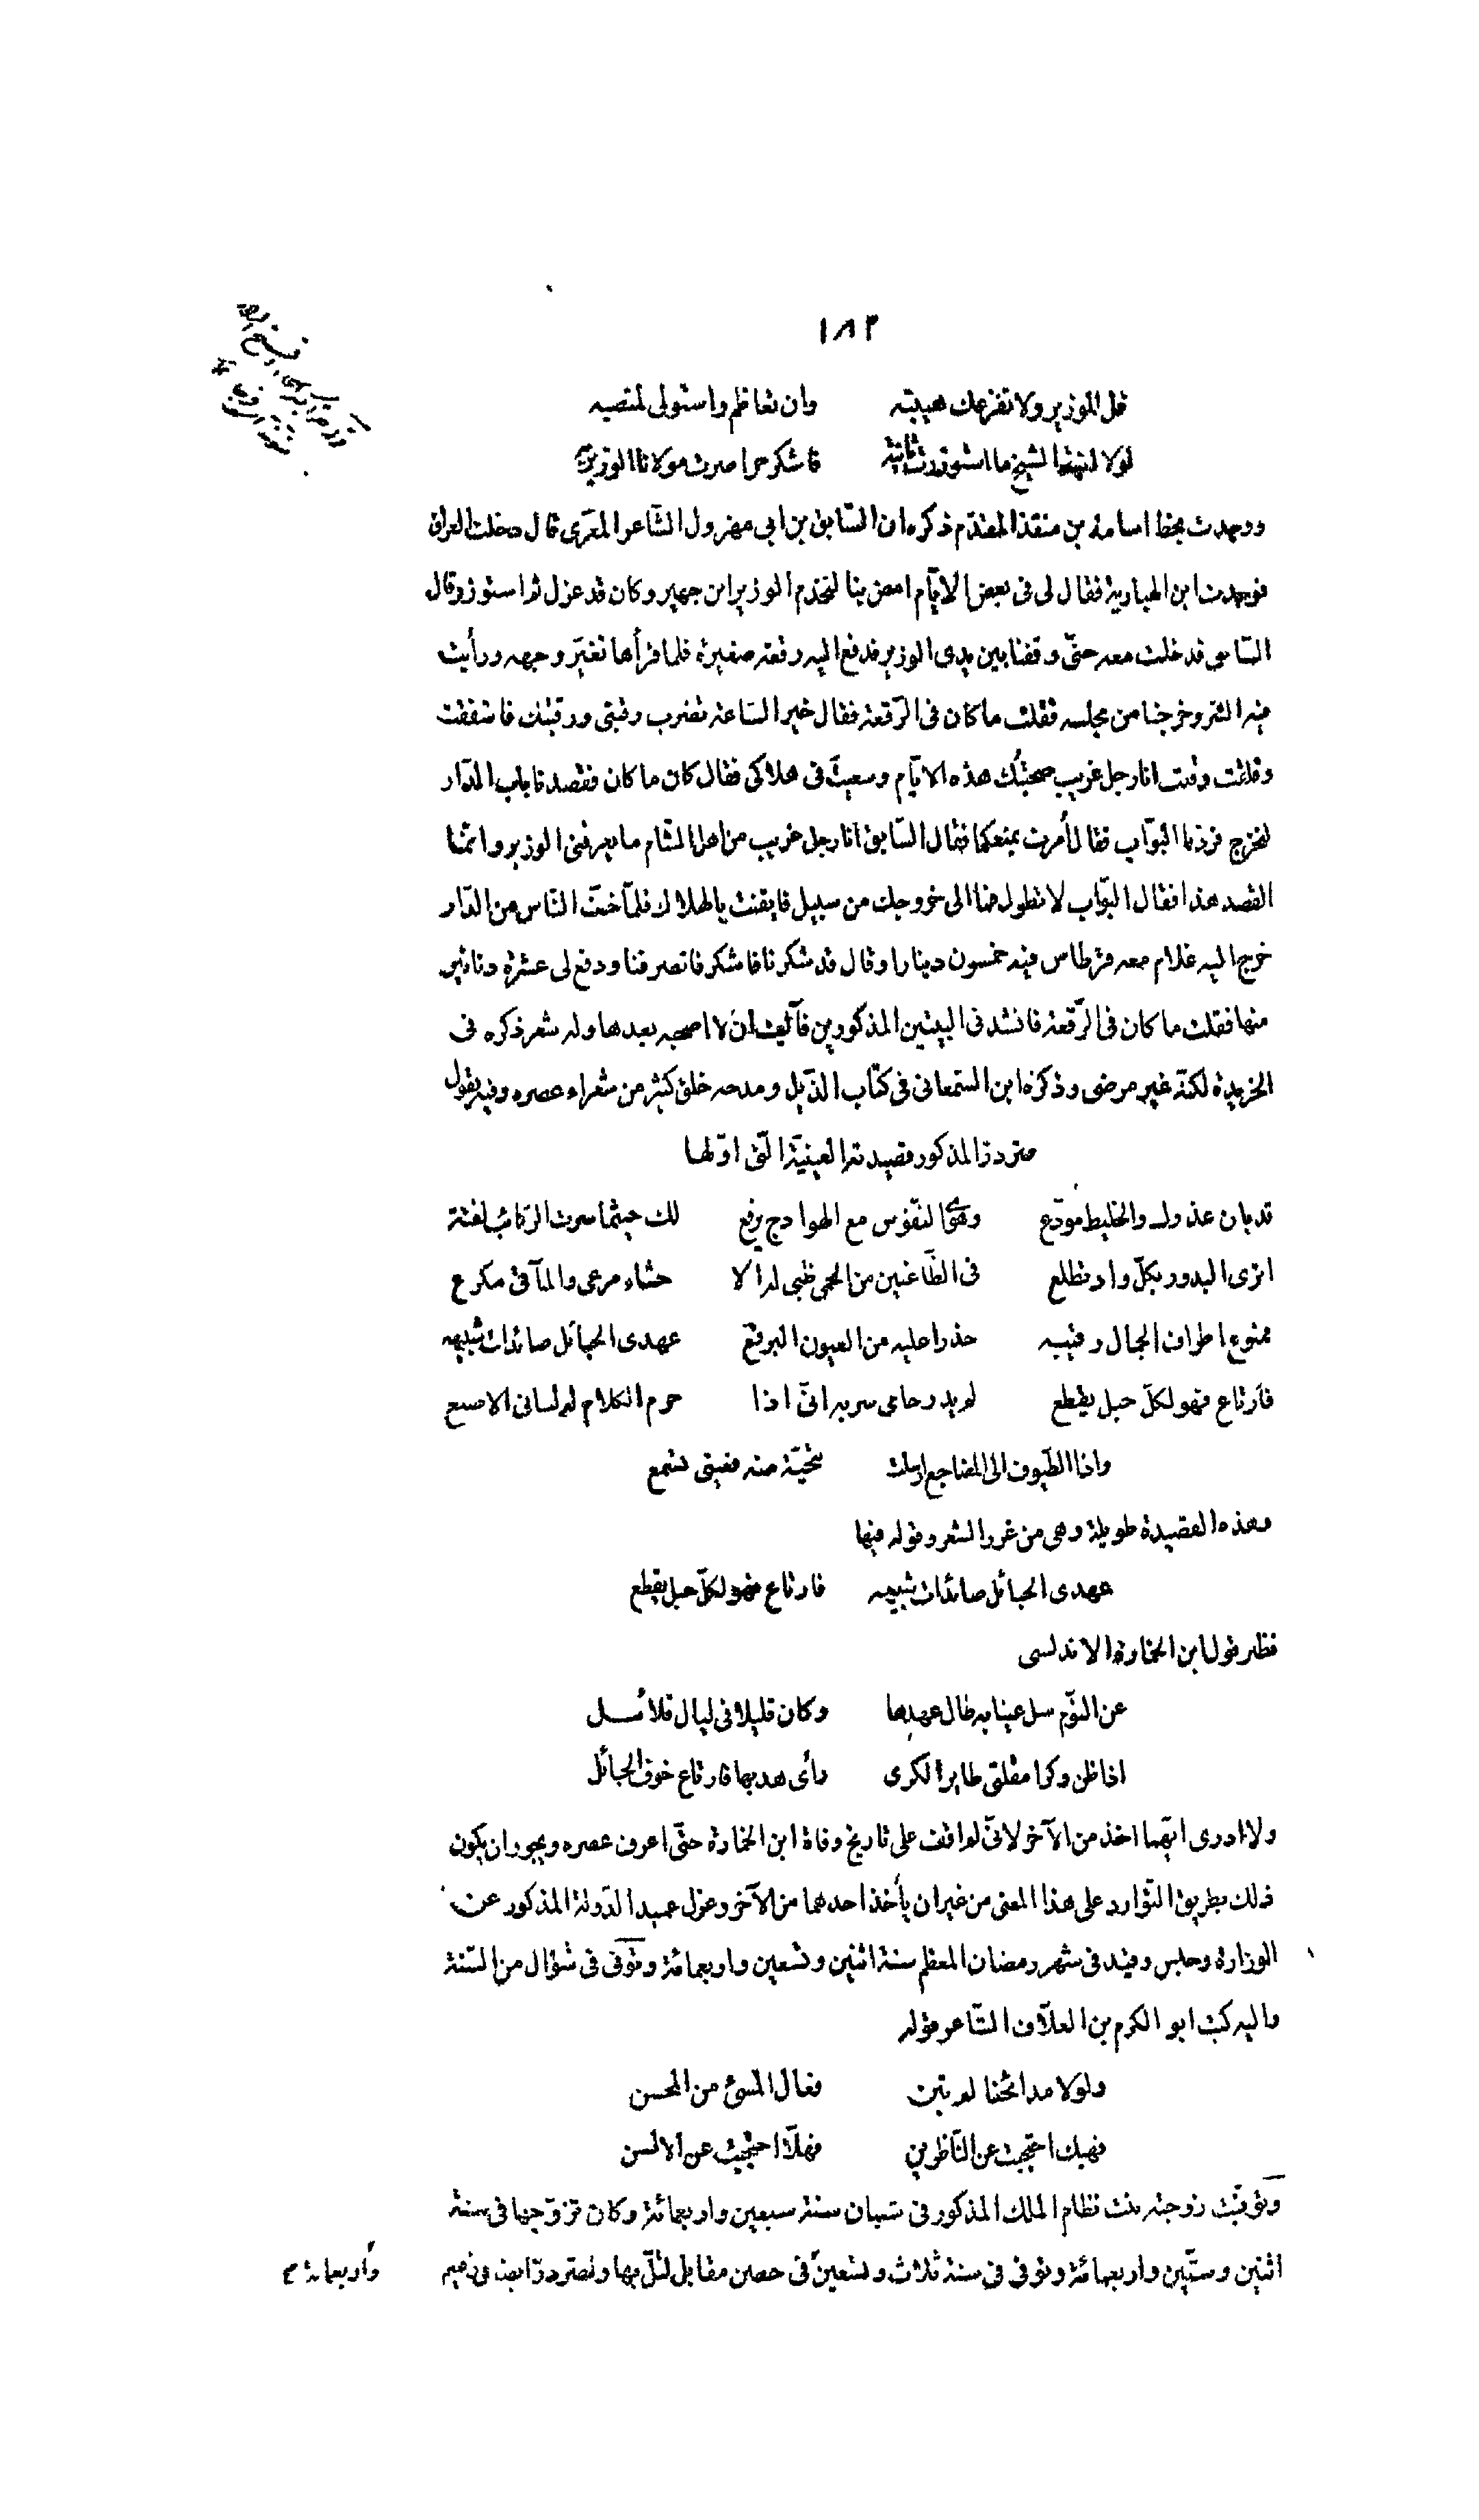 ١٨٣
قل للوزير ولا تفزعك هيبته وان تعاظم واستولى لمنصبه
لولا ابنة الشيخ ما استوزرت ثانية فاشكر حرا صرت مولانا الوزير به
ووجدت بخط اسامة بن منقذ المقدّم ذكره ان السّابق بن ابى مهزول الشّاعر المعرّى قال دخلت العراق
فوجدت ابن الهبارية فقال لى فى بعض الايّام امض بنا لنخدم الوزير ابن جهير وكان قد عزل ثم استوزر قال
السّابق فدخلت معه حتّى وقفنا بين يدى الوزير فدفع اليه رقعة صغيرة فلما قرأها تغيّر وجهه ورأيت
فيه الشرّ وخرجنا من مجلسه فقلت ما كان فى الرّقعة فقال خير السّاعة تضرب رقبتى ورقبتك فاشفقت
وقلقت وقلت انا رجل غريب صحبتك هذه الايّام وسعيت فى هلاكى فقال كان ما كان فقصدنا باب الدّار
لنخرج فردّنا البوّاب فقال أمرت بمنعكما فقال السّابق انا رجل غريب من اهل الشّام ما يعرفنى الوزير وانّما
القصد هذا فقال البوّاب لا تطول فما الى خروجك من سبيل فايقنت بالهلاك فلمّا خفّ النّاس من الدّار
خرج اليه غلام معه قرطاس فيه خمسون دينارا وقال قد شكرنا فاشكر فانصرفنا ودفع لى عشرة دنانير
منها فقلت ما كان فى الرّقعة فانشدنى البيتين المذكورين فآليت ان لا اصحبه بعدها وله شعر ذكره فى
الخريدة لكنّه غير مرضى وذكره ابن السّمعانى فى كتاب الذّيل ومدحه خلق كثير من شعراء عصره وفيه يقول
صرّدرّ المذكور قصيدته العينيّة الّتى اوّلها
قد بان عذرك والخليط مودّع وهوى النفوس مع الهوادج يرفع لك حيثما سرت الركائب لفتة
اترى البدور بكلّ واد تطلع فى الظّاعنين من الحمى ظبى له الا حشاء مرعى والمآقى مكرع
ممنوع اطراف الجمال رقيبه حذرا عليه من العيون البرقع عهدى الحبائل صائدات شبيهه
فارتاع فهو لكلّ حبل يقطع لم يدر حامى سربه انّى اذا حرم الكلام له لسانى الاصبع
واذا الطّيوف الى المضاجع ارسلت بتحيّة منه فعينى تسمع
وهذه القصيدة طويلة وهى من غرر الشعر وقوله فيها
عهدى الحبائل صائدات شبيهه فارتاع فهو لكلّ حبل يقطع
نظير قول ابن الخمارة الاندلسى
عن النّوم سل عينا به طال عهدها وكان قليلا فى ليال قلائل
اذا ظن وكرا مقلتى طاير الكرى رأى هدبها فارتاع خوف الحبائل
ولا ادرى ايّهما اخذ من الآخر لانّى لم اقف على تاريخ وفاة ابن الخمارة حتّى اعرف عصره ويجوز ان يكون
ذلك بطريق التّوارد على هذا المعنى من غير ان يأخذ احدهما من الآخر وعزل عميد الدّولة المذكور عن
الوزارة وحبس وقيد فى شهر رمضان المعظم سنة اثنين وتسعين واربعمائة وتوفى فى شوّال من السّنة
واليه كتب ابو الكرم بن العلاّف الشّاعر قوله
ولولا مدائحنا لم يبن فعال المسئ من المحسن
فهبك احتجبت عن النّاظرين فهلاّ احتجبت عن الالسن
وتوفيّت زوجته بنت نظام الملك المذكور فى شعبان سنة سبعين واربعمائة وكان تزوّجها فى سنة
اثنين وستّين واربعمائة وتوفى فى سنة ثلاث وتسعين فى حصن مقابل لتلّ بها ولصرّدرّ ايضا فى زعيم
واربعمائة